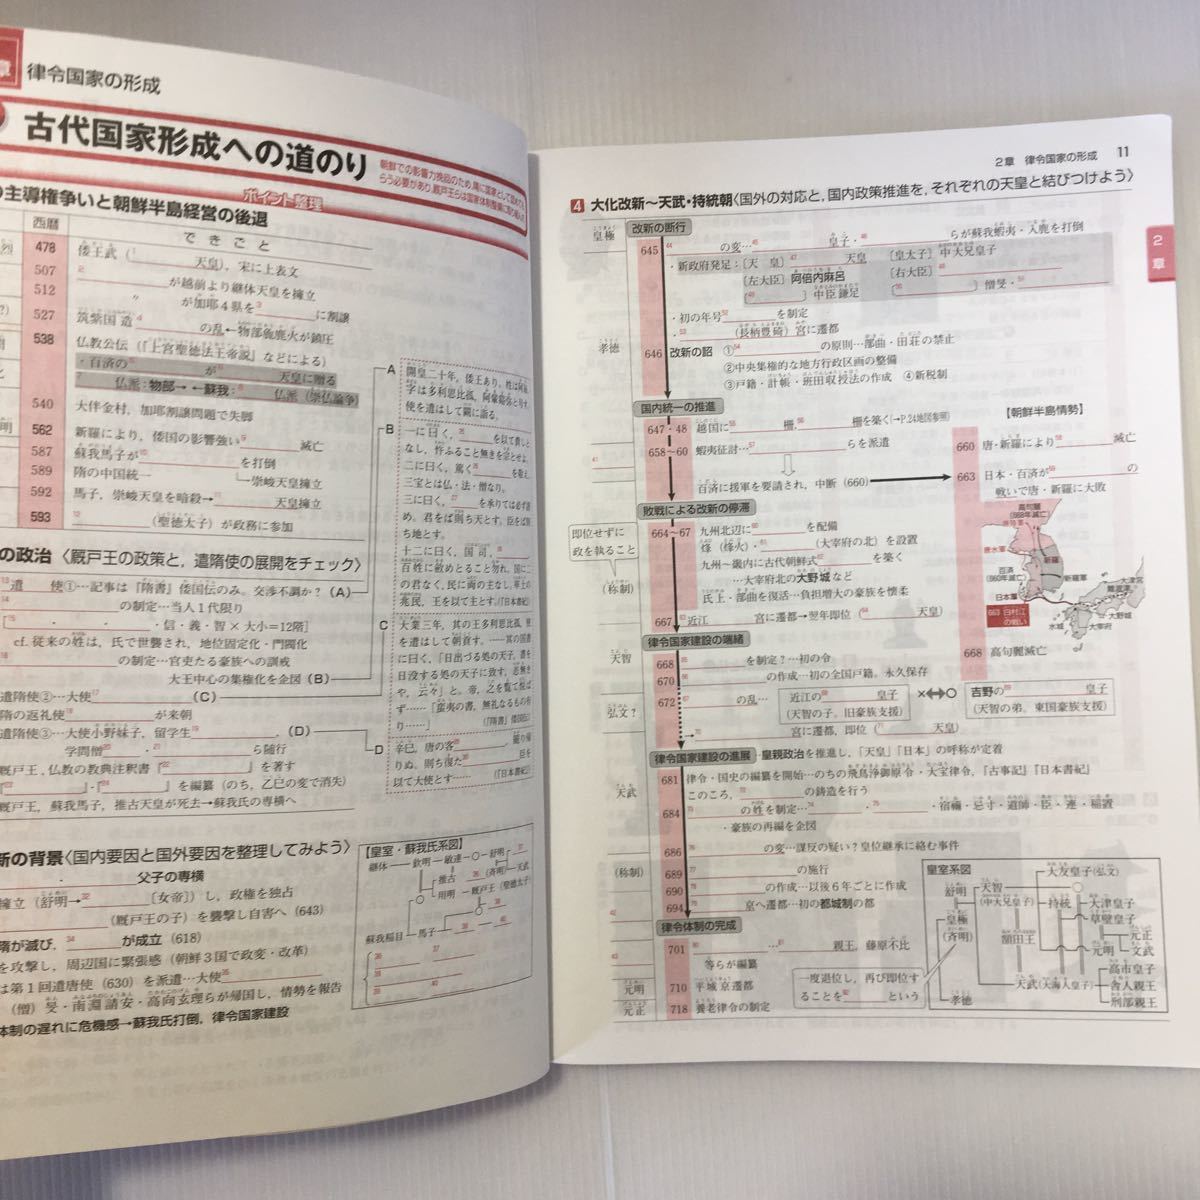 章
律令国家の形成
古代国家形成への道のり
ポイント整理
の主導権争いと朝鮮半島経営の後退
西暦
できごと
478 倭王武(　天皇), 宋に上表文
507 が越前より継体天皇を擁立
512 〃 が加耶4県を3 に割譲
527 筑紫国造4 の乱←物部麁鹿火が鎮圧
538 仏教公伝(『上宮聖徳法王帝説』などによる)
・百済の5 が6 天皇に贈る
7 仏派:物部→←蘇我:8 仏派(崇仏論争)
540 大伴金村, 加耶割譲問題で失脚
562 新羅により, 倭国の影響強い9 滅亡
587 蘇我馬子が10 を打倒
589 隋の中国統一 →崇峻天皇擁立
592 馬子, 崇峻天皇を暗殺→11 天皇擁立
593 12 (聖徳太子)が政務に参加
の政治〈厩戸王の政策と, 遣隋使の展開をチェック〉
13 遣 使①…記事は『隋書』倭国伝のみ。交渉不調か?(A)
14 の制定…当人1代限り
15 ・信・義・智×大小=12階
cf. 従来の姓は, 氏で世襲され, 地位固定化・門閥化
16 の制定…官吏たる豪族への訓戒
大王中心の集権化を企図(B)
遣隋使②…大使17 (C)
隋の返礼使18 が来朝
遣隋使③…大使小野妹子, 留学生19 (D)
学問僧20 ・21 ら随行
厩戸王, 仏教の教典注釈書『22 』を著す
『23 』・『24 』を編纂(のち, 乙巳の変で消失)
厩戸王, 蘇我馬子, 推古天皇が死去→蘇我氏の専横へ
新の背景〈国内要因と国外要因を整理してみよう〉
父子の専横
擁立(舒明→32 〔女帝〕)し, 政権を独占
(厩戸王の子)を襲撃し自害へ(643)
隋が滅び, 34 が成立(618)
を攻撃し, 周辺国に緊張感(朝鮮3国で政変・改革)
は第1回遣唐使(630)を派遣…大使
(僧)旻・南淵請安・高向玄理らが帰国し, 情勢を報告
体制の遅れに危機感→蘇我氏打倒, 律令国家建設
A 開皇二十年, 倭王あり, 姓は阿毎,
字は多利思比孤, 阿輩雞弥と号す。
使を遣はして闕に詣る。
B 一に曰く, 25 を以て貴しと
なし, 忤ふること無きを宗とせよ。
二に曰く, 篤く26 を敬え。
三宝とは仏・法・僧なり。
三に曰く, 27 を承りては必ず謹
め。君をば則ち天とす。臣をば則
ち地とす。
十二に曰く, 国司,
百姓に斂めとること勿れ。国に二
の君なく, 民に両の主なし。率土の
兆民, 王を以て主とす。『日本書紀』
C 大業三年, 其の王多利思比孤, 使
を遣はして朝貢す。……其の国書
に曰く,「日出づる処の天子, 書を
日没する処の天子に致す。恙無き
や, 云々」と。帝, 之を覧て悦ば
ず……「蛮夷の書, 無礼なるもの有
り……」 『隋書』倭国伝
D 辛巳, 唐の客
臣を
以て大使とす 『日本書紀』
【皇室・蘇我氏系図】
継体 欽明 敏達 舒明 天武
推古 36(斉明)
用明 厩戸王(聖徳太子)
蘇我稲目 馬子
2章 律令国家の形成 11
2章
4 大化改新〜天武・持統朝〈国外の対応と, 国内政策推進を, それぞれの天皇と結びつけよう〉
皇極
改新の断行
645 44 の変…45 皇子・46 らが蘇我蝦夷・入鹿を打倒
・新政府発足:〔天 皇〕47 天皇 〔皇太子〕中大兄皇子
〔左大臣〕阿倍内麻呂 〔右大臣〕48
〔49 〕中臣鎌足 〔50 〕僧旻・51
・初の年号52 を制定
・53 (長柄豊碕)宮に遷都
孝徳
646 改新の詔 ①54 の原則…部曲・田荘の禁止
②中央集権的な地方行政区画の整備
③戸籍・計帳・班田収授法の作成 ④新税制
国内統一の推進
647・48 越国に55 柵, 56 柵を築く(→P.24地図参照)
658〜60 蝦夷征討…57 らを派遣
百済に援軍を要請され, 中断(660)
【朝鮮半島情勢】
660 唐・新羅により58 滅亡
663 日本・百済が59 の
戦いで唐・新羅に大敗
敗戦による改新の停滞
即位せずに
政を執ること
(称制)
664〜67 九州北辺に60 を配備
烽(烽火)・61 (大宰府の北)を設置
九州〜畿内に古代朝鮮式62 を築く
…大宰府北の大野城など
氏上・部曲を復活…負担増大の豪族を懐柔
667 63近江 宮に遷都→翌年即位(64 天皇)
高句麗
(668年滅亡)
唐水軍
百済
(660年滅亡)
新羅
新羅軍
日本軍
663 白村江
の戦い
水城
大宰府
大野城
難波宮
大津宮
668 高句麗滅亡
律令国家建設の端緒
天智
668 65 を制定?…初の令
670 66 の作成…初の全国戸籍。永久保存
弘文?
672 67 の乱… 近江の68 皇子
(天智の子。旧豪族支援)
×⇔○
吉野の69 皇子
(天智の弟。東国豪族支援)
→70 宮に遷都, 即位(71 天皇)
律令国家建設の進展
・皇親政治を推進し,「天皇」「日本」の呼称が定着
天武
681 律令・国史の編纂を開始…のちの飛鳥浄御原令・大宝律令,『古事記』『日本書紀』
このころ, 72 の鋳造を行う
684 73 の姓を制定…74 ・75 ・宿禰・忌寸・道師・臣・連・稲置
・豪族の再編を企図
(称制)
686 76 の変…謀反の疑い? 皇位継承に絡む事件
689 77 の施行
690 78 の作成…以後6年ごとに作成
694 79 京へ遷都…初の都城制の都
律令体制の完成
701 80 …81 親王, 藤原不比
等らが編纂
元明 710 平城京遷都
元正 718 養老律令の制定
一度退位し, 再び即位す
ることを82 という
皇室系図
舒明
皇極
(斉明)
孝徳
天智
(中大兄皇子)
額田王
天武(大海人皇子)
大友皇子(弘文)
持統
大津皇子
草壁皇子
元明
元正
文武
高市皇子
舎人親王
刑部親王